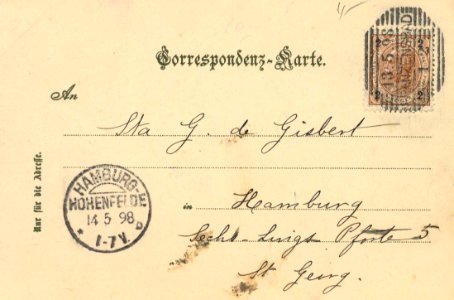 Correspondenz-Karte.
2
2
2
2
13 5 98
An
Sta G. de Gisbert
Nur für die Adresse.
HAMBURG-E
HOHENFELDE
14 5 98
* 1-7 V. b
in Hamburg
Pforte 5
St Georg.